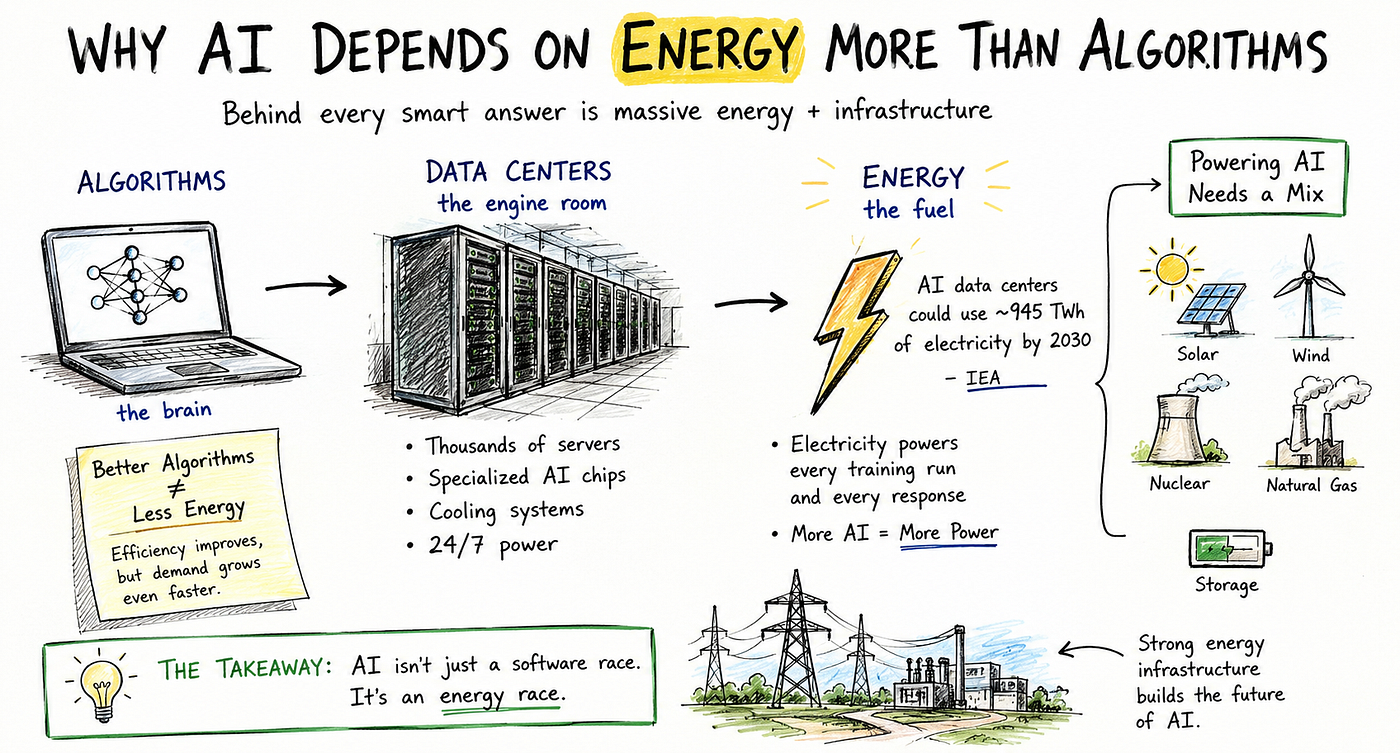 WHY AI DEPENDS ON ENERGY MORE THAN ALGORITHMS
Behind every smart answer is massive energy + infrastructure
ALGORITHMS
the brain
Better Algorithms
≠
Less Energy
Efficiency improves,
but demand grows
even faster.
DATA CENTERS
the engine room
• Thousands of servers
• Specialized AI chips
• Cooling systems
• 24/7 power
ENERGY
the fuel
AI data centers
could use ~945 TWh
of electricity by 2030
– IEA
• Electricity powers
every training run
and every response
• More AI = More Power
Powering AI
Needs a Mix
Solar
Wind
Nuclear
Natural Gas
Storage
THE TAKEAWAY: AI isn't just a software race.
It's an energy race.
Strong energy
infrastructure
builds the future
of AI.